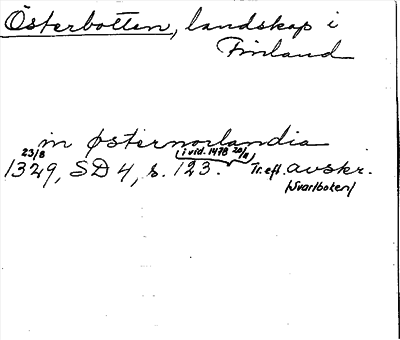 Österbotten, landskap i
Finland
in østernorlandia
23/8 i vid. 1478 20/8
1329, SD 4, s. 123. Tr. eft. avskr.
/Svartboken/